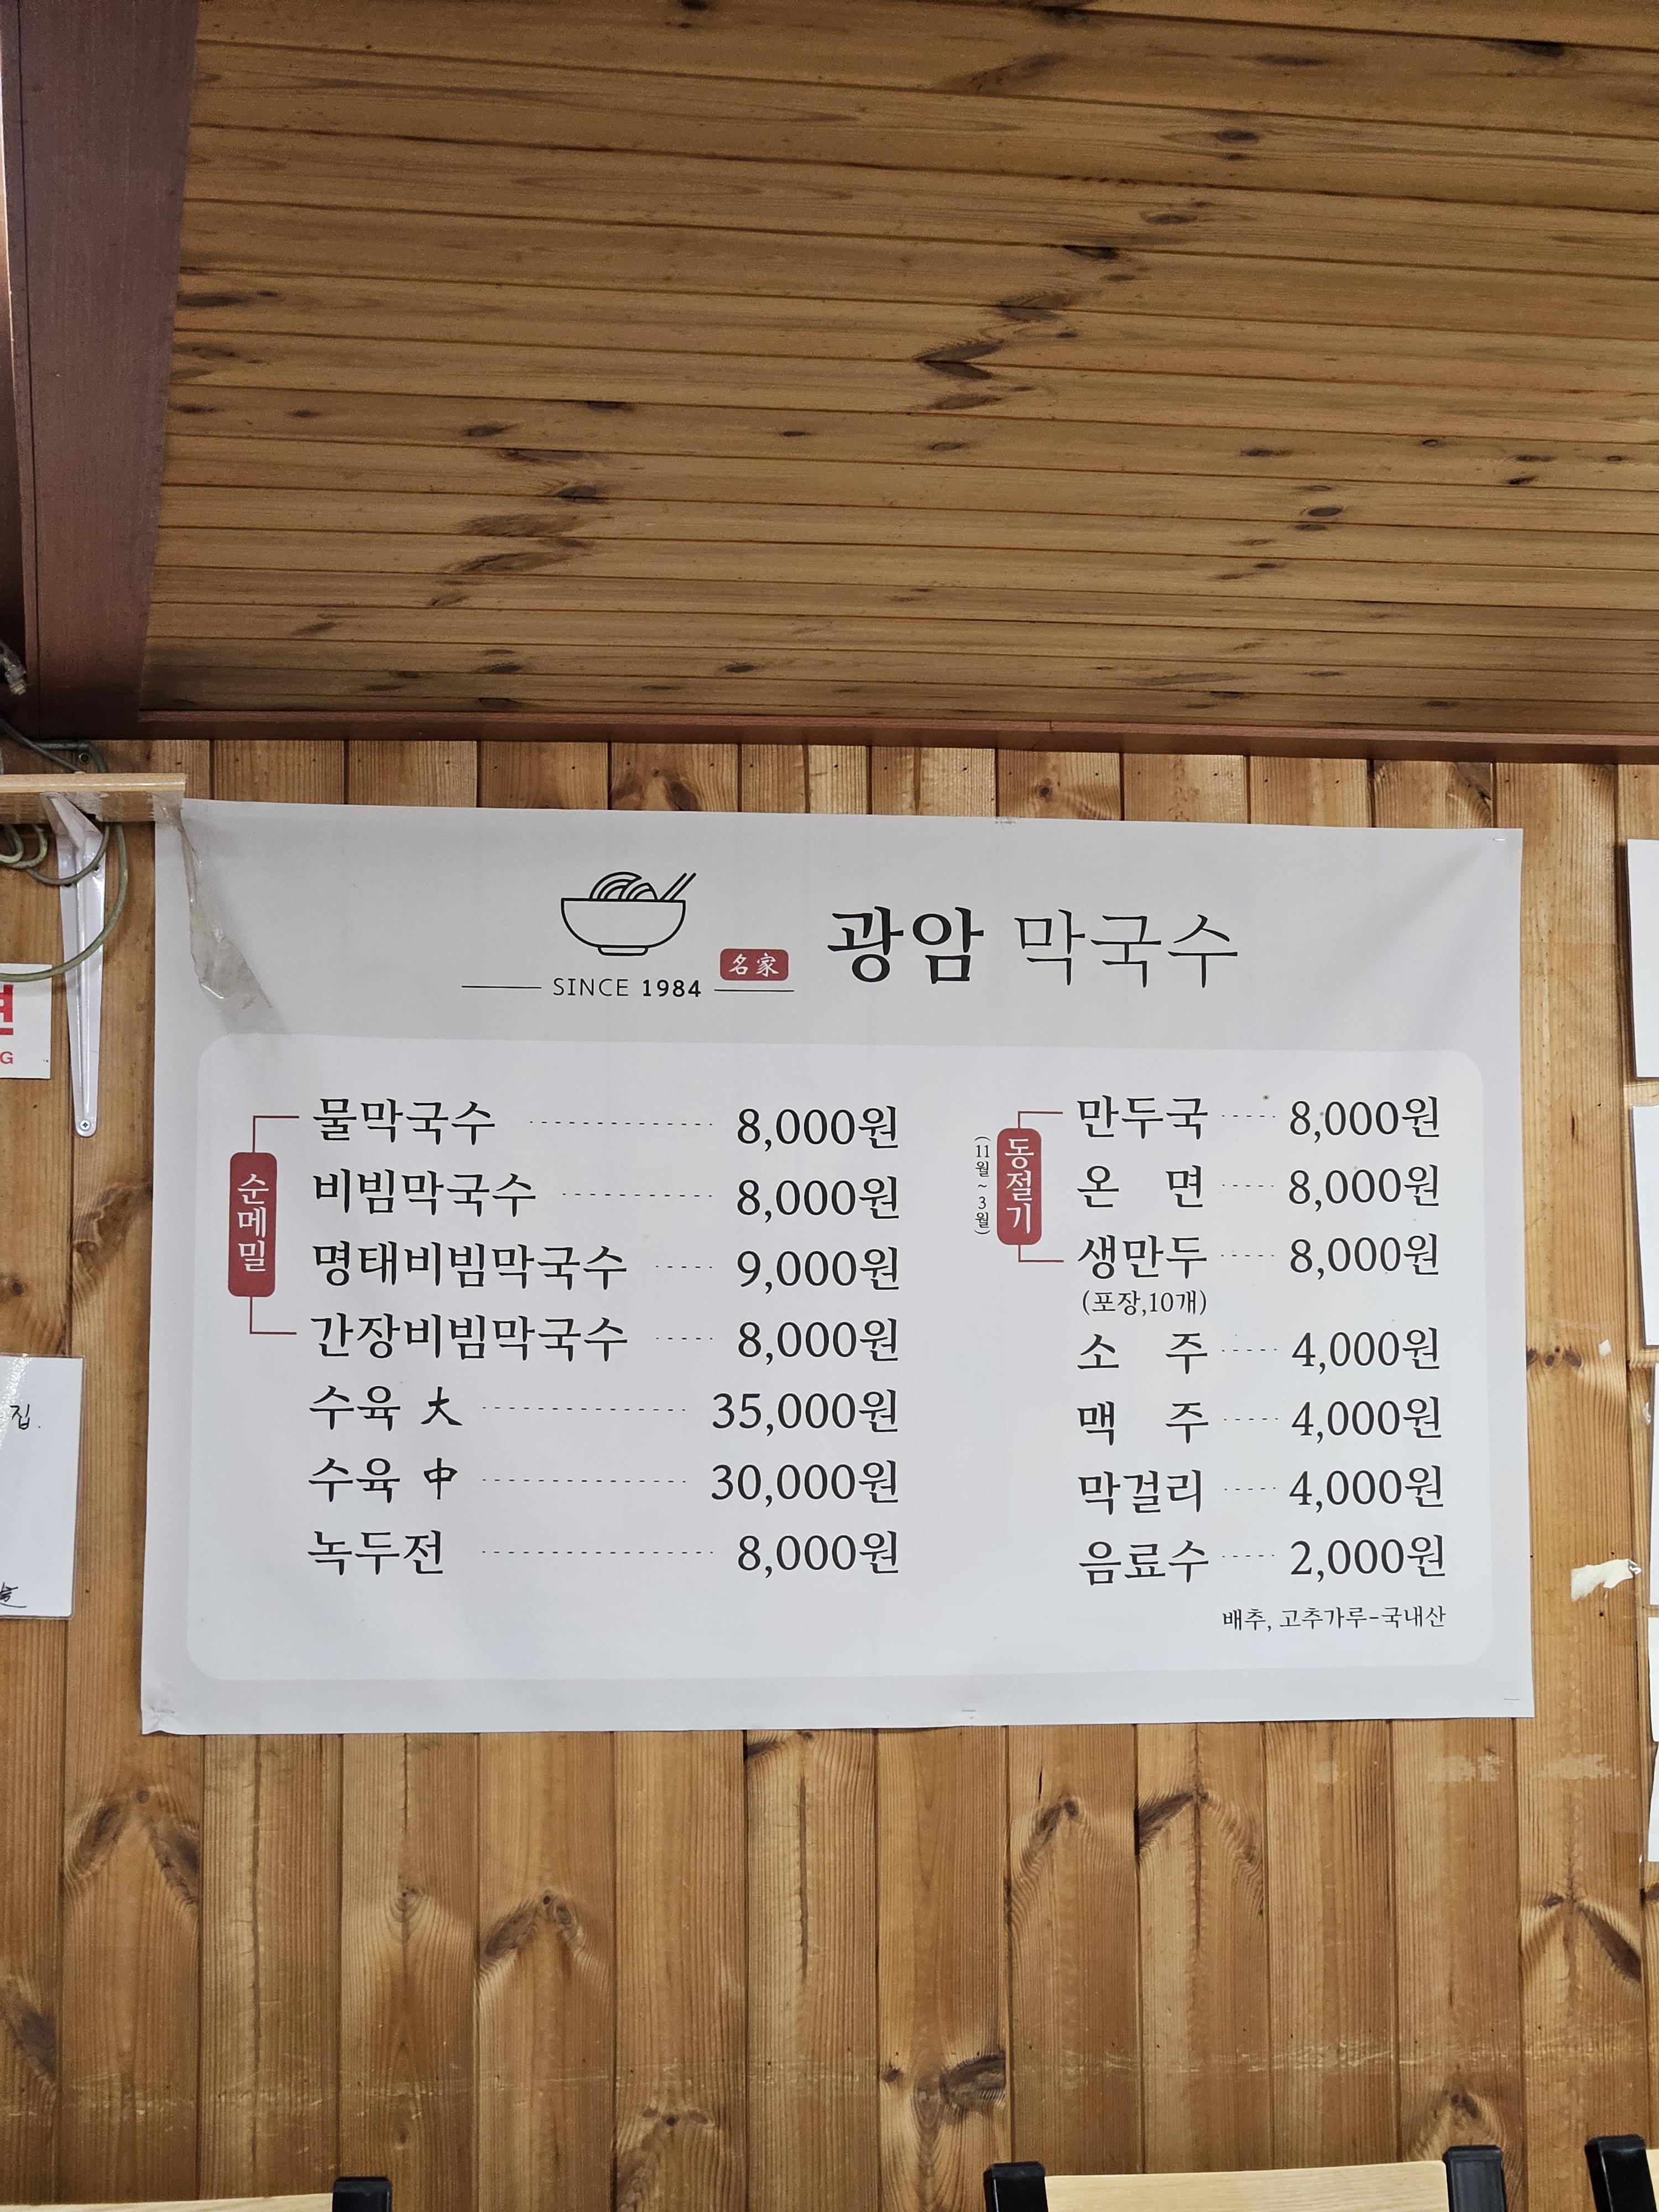 SINCE 1984
名家
광암 막국수
순메밀
물막국수 8,000원
비빔막국수 8,000원
명태비빔막국수 9,000원
간장비빔막국수 8,000원
수육 大 35,000원
수육 中 30,000원
녹두전 8,000원
동절기
(11월~3월)
만두국 8,000원
온 면 8,000원
생만두 8,000원
(포장,10개)
소 주 4,000원
맥 주 4,000원
막걸리 4,000원
음료수 2,000원
배추, 고추가루-국내산
면
G
집.